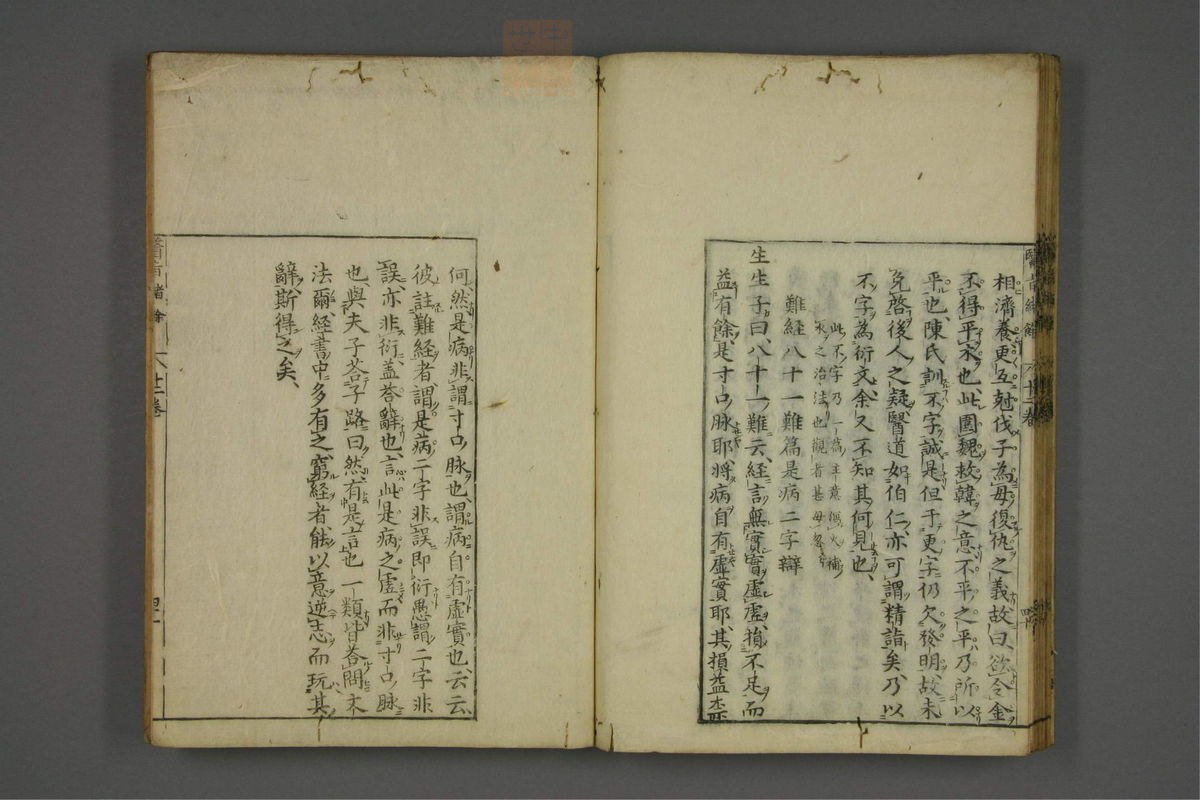 相濟養更互尅伐子為母復仇之義故曰欲令金
不得平木也此圍魏救韓之意不平之平乃所以
平也陳氏訓不字誠是但于更字仍欠發明故未
免啓後人之疑醫道如伯仁亦可謂精詣矣乃以
不字為衍文余又不知其何見也
此不字乃一篇主意瀉火補
水之治法也觀者甚毋忽
難經八十一難篇是病二字辯
生生子曰八十一難云經言無實實虛虛損不足而
益有餘是寸口脉耶將病自有虛實耶其損益柰
何然是病非謂寸口脉也謂病自有虛實也云云
彼註難經者謂是病二字非誤即衍愚謂二字非
誤亦非衍盖荅辭也言此是病之虛而非寸口脉
也與夫子荅子路曰然有是言也一類皆荅問文
法爾經書中多有之窮經者能以意逆志而玩其
辭斯得之矣
醫旨緒餘